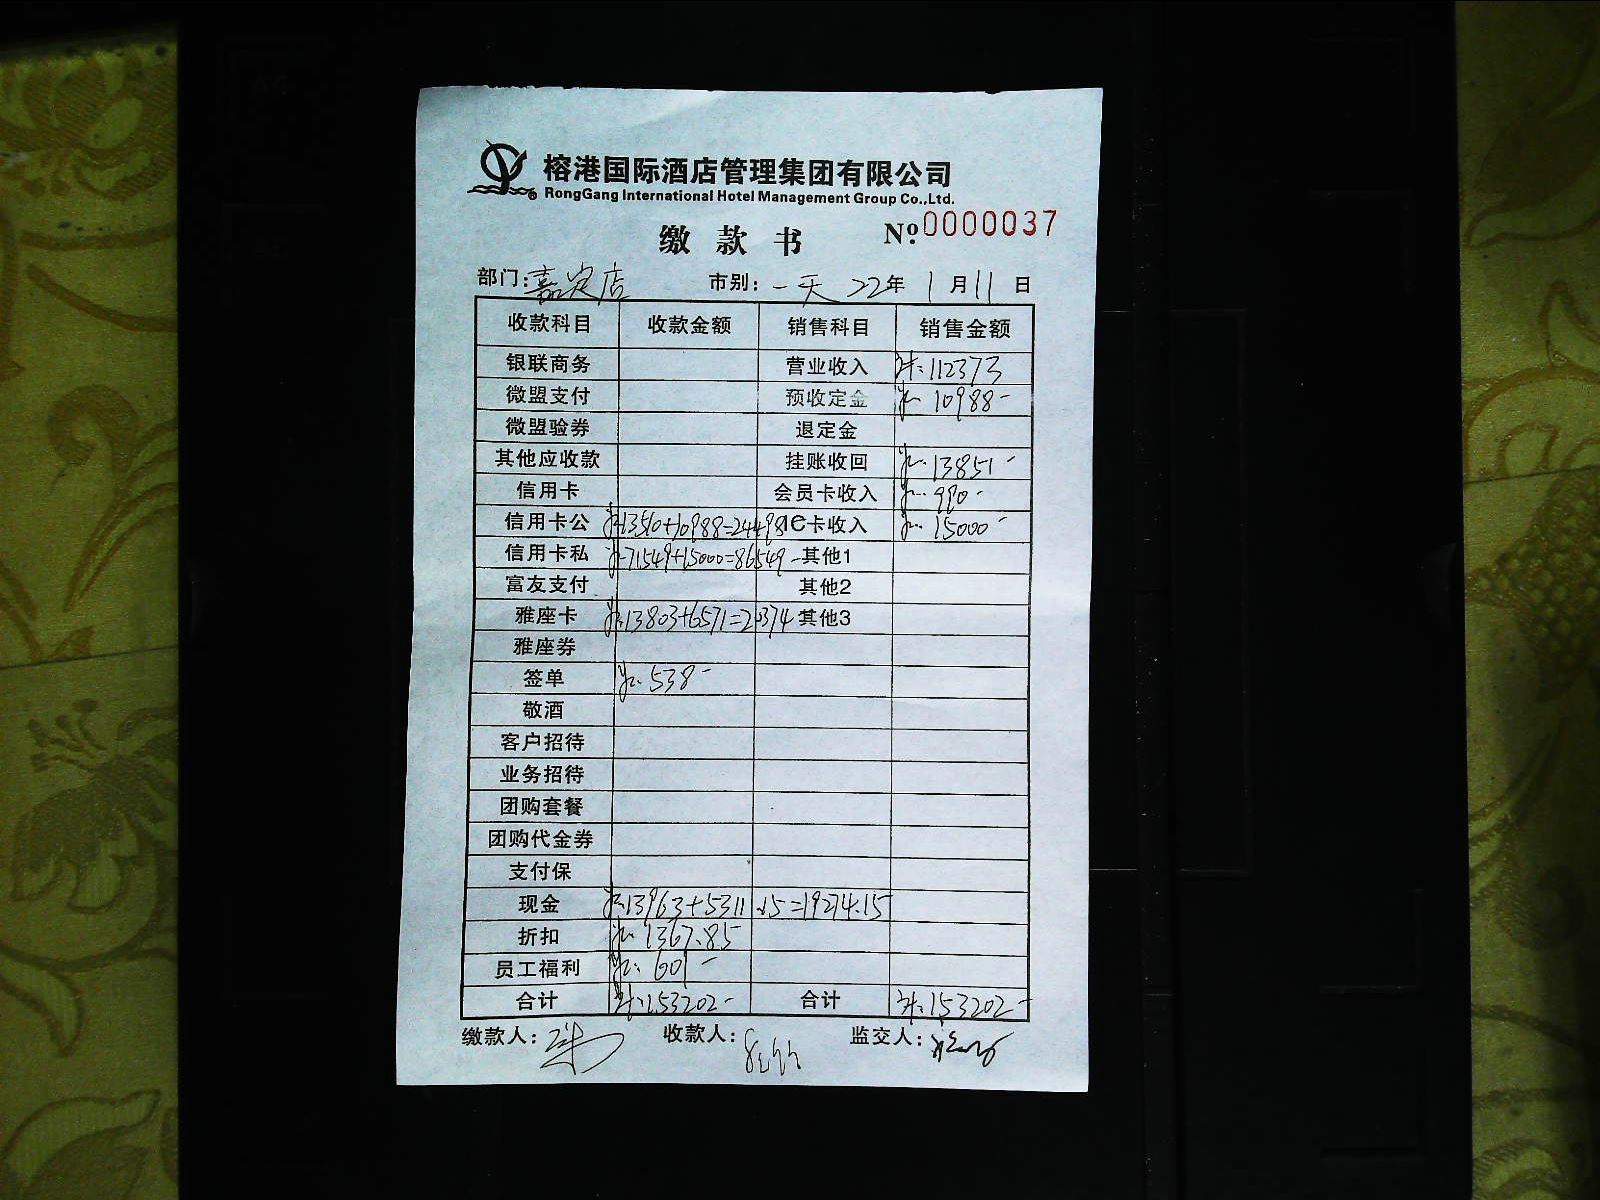 榕港国际酒店管理集团有限公司
RongGang International Hotel Management Group Co.,Ltd.
缴款书 №0000037
部门:嘉定店 市别:一天 22年1月11日
收款科目 收款金额 销售科目 销售金额
银联商务 营业收入 112373
微盟支付 预收定金 10988-
微盟验券 退定金
其他应收款 挂账收回 13851-
信用卡 会员卡收入 990-
信用卡公 13510+10988=24498 IC卡收入 15000-
信用卡私 71549+15000=86549- 其他1
富友支付 其他2
雅座卡 13803+6571=20374 其他3
雅座券
签单 538-
敬酒
客户招待
业务招待
团购套餐
团购代金券
支付保
现金 13963+5311.15=19274.15
折扣 1367.85
员工福利 601-
合计 153202- 合计 153202-
缴款人: 收款人: 监交人: